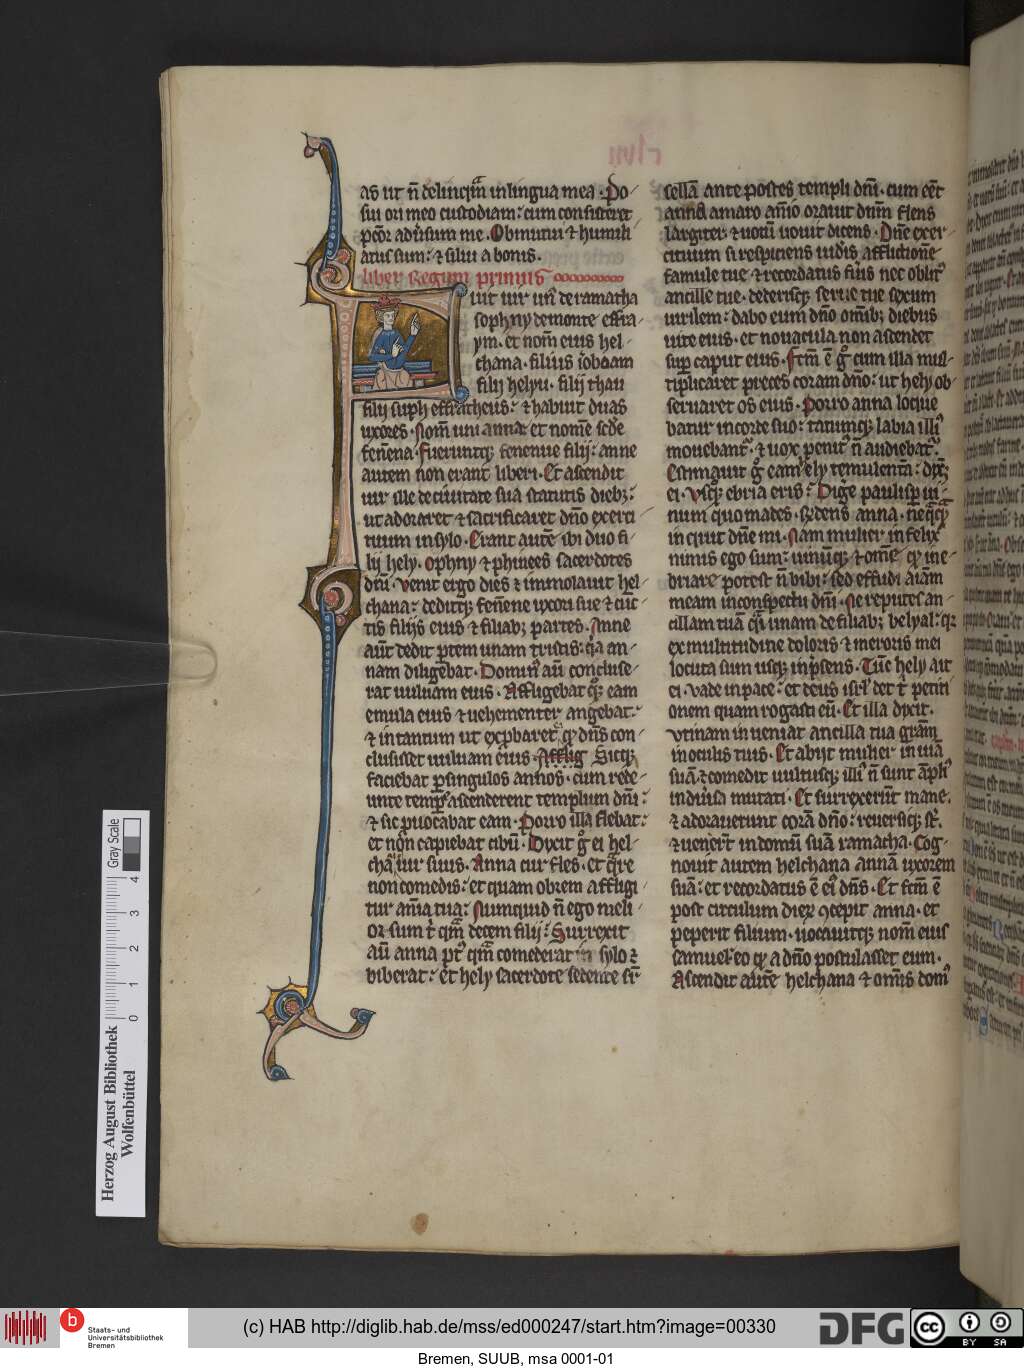 as ut n̄ delinqm̄ in lingua mea · Po-
sui ori meo custodiam: cum consisteret
pcc̄or adūsum me. Obmutui ⁊ humili-
atus sum: ⁊ silui a bonis.
liber Regum primus
uit uir un᷒ de ramatha
sophny de monte effra-
ym. et nom̄ eius hel-
chana. filius ioboam
filij helyu. filij thau
filij suph effratheus: ⁊ habuit duas
uxores. Nom̄ uni anna: et nom̄e scd̄e
fen̄ena. Fueruntq; fenenne filij: anne
autem non erant liberi. Et ascendit
uir ille de ciuitate sua statutis dieb;:
ut adoraret ⁊ sacrificaret dn̄o exerci-
tuum in sylo. Erant autē ibi duo fi-
lij hely. ophny ⁊ phinees sacerdotes
dn̄i. Venit ergo dies ⁊ immolauit hel-
chana: deditq; fen̄ene uxori sue ⁊ cūc-
tis filijs eius ⁊ filiab; partes. Anne
aūt dedit ptem unam tristis: qa an-
nam diligebat. Domin᷒ aū concluse-
rat uuluam eius. Affligebat q̄; eam
emula eius ⁊ uehementer angebat:
⁊ in tantum ut exp̄baret q̄ dn̄s con-
clusisset uuluam eius. Afflig Sicq;
faciebat p singulos annos. cum rede-
unte tempr̄e ascenderent templum dn̄i:
⁊ sic p̄uocabat eam. Porro illa flebat:
et nō capiebat cibū. Dixit g̊ ei hel-
chā uir suus. Anna cur fles. et q̄re
non comedis: et quam obrem affligi-
tur aīa tua: Numquid n̄ ego meli-
or sum t̄ qm̄ decem filij: Surrexit
aū anna pt᷒ qm̄ comederat in sylo ⁊
biberat: et hely sacerdote sedente sr̄
sellā ante postes templi dn̄i. cum eēt
anna amaro aīo orauit dnm̄ flens
largiter. ⁊ uotū uouit dicens. Dn̄e exer-
cituum si respiciens uidis afflictionē
famule tue ⁊ recordatus fūis nec oblit᷒
ancille tue. dederisq; serue tue sexum
uirilem: dabo eum dn̄o om̄ib; diebus
uite eius. et nouacula non ascendet
sup caput eius. Fc̄m ē g̊ cum illa mul-
tiplicaret preces coram dn̄o: ut hely ob-
seruaret os eius. Porro anna loque-
batur in corde suo: tantumq; labia illi᷒
mouebant᷒. ⁊ uox penit᷒ n̄ audiebat᷒.
Estimauit g̊ eam ely temulentā: dix̄q;
ei. Usq; q̊ ebria eris: Dige paulisp ui-
num quo mades. Rn̄dens anna. neq̄q̄
inquit dn̄e mi. Nam mulier infelix
nimis ego sum: uinūq; ⁊ om̄e q̄ ine-
briare potest n̄ bibi: sed effudi aīam
meam in conspectu dn̄i. Ne reputes an-
cillam tuā q̄i unam de filiab; belyal: q̄
ex multitudine doloris ⁊ meroris mei
locuta sum usq; in p̄sens. Tūc hely ait
ei. Vade in pace: et deus isrl̄ det t̄ petiti-
onem quam rogasti eū. Et illa dixit.
Vtinam inueniat ancilla tua gram̄
in oculis tuis. Et abijt mulier in uiā
suā. ⁊ comedit uultusq; illi᷒ n̄ sunt ampli᷒
in diūsa mutati. Et surrexerūt mane.
⁊ adorauerunt corā dn̄o: reuersiq; st̄.
⁊ uenert̄ in domū suā ramatha. Cog-
nouit autem helchana annā uxorem
suā: et recordatus ē ei dn̄s. Et fc̄m ē
post circulum dierꝝ ꝯcepit anna. et
peperit filium. uocauitq; nom̄ eius
samuel: eo q̄ a dn̄o postulasset eum.
Ascendit autē helchana ⁊ om̄is dom᷒
Gray Scale
0 1 2 3 4
Herzog August Bibliothek
Wolfenbüttel
b
Staats- und
Universitätsbibliothek
Bremen
(c) HAB http://diglib.hab.de/mss/ed000247/start.htm?image=00330
DFG
cc BY SA
Bremen, SUUB, msa 0001-01